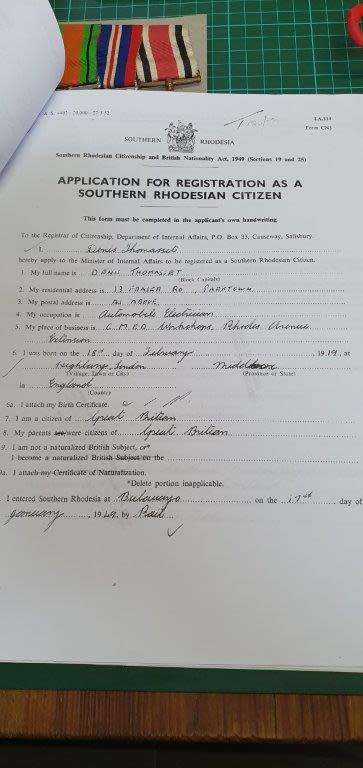 I.A.114
Form CN3
SOUTHERN RHODESIA
Southern Rhodesian Citizenship and British Nationality Act, 1949 (Sections 19 and 25)
APPLICATION FOR REGISTRATION AS A
SOUTHERN RHODESIAN CITIZEN
This form must be completed in the applicant's own handwriting.
To the Registrar of Citizenship, Department of Internal Affairs, P.O. Box 33, Causeway, Salisbury.
I,
hereby apply to the Minister of Internal Affairs to be registered as a Southern Rhodesian Citizen.
1. My full name is
(Block Capitals)
2. My residential address is 13 FRASER RD, PARKTOWN
3. My postal address is AS ABOVE
4. My occupation is Automobile Electrician
5. My place of business is C.M.E.D. Workshops, Rhodes Avenue
6. I was born on the 18th day of February 1919, at
Highbury, London Middlesex
(Village, Town or City) (Province or State)
in England
(Country)
6a. I attach my Birth Certificate.
7. I am a citizen of Great Britian
8. My parents were citizens of Great Britian
9. I am not a naturalized British Subject, or*
I become a naturalized British Subject on the
9a. I attach my Certificate of Naturalization.
*Delete portion inapplicable.
I entered Southern Rhodesia at Bulawayo on the 17th day of
January, 1949, by Rail